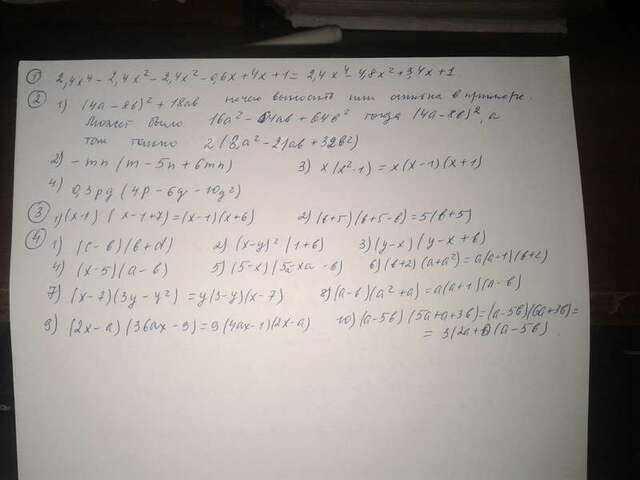 ① 2,4x⁴ - 2,4x² - 2,4x² - 0,6x + 4x + 1 = 2,4x⁴ - 4,8x² + 3,4x + 1
② 1) (4a - 8b)² + 18ab нечего выносить или ошибка в примере.
Может было 16a² - 64ab + 64b² тогда (4a - 8b)², а
так только 2(8a² - 21ab + 32b²)
2) -mn(m - 5n + 6mn) 3) x(x² - 1) = x(x - 1)(x + 1)
4) 0,3pq(4p - 6q - 10q²)
③ 1) (x-1)(x-1+7) = (x-1)(x+6) 2) (b+5)(b+5-b) = 5(b+5)
④ 1) (c-b)(b+d) 2) (x-y)²(1+b) 3) (y-x)(y-x+b)
4) (x-5)(a-b) 5) (5-x)(5-xa-b) 6) (b+2)(a+a²) = a(a-1)(b+2)
7) (x-7)(3y-y²) = y(3-y)(x-7) 8) (a-b)(a²+a) = a(a+1)(a-b)
9) (2x-a)(36ax-9) = 9(4ax-1)(2x-a) 10) (a-5b)(5a+a+3b) = (a-5b)(6a+3b) =
= 3(2a+b)(a-5b)